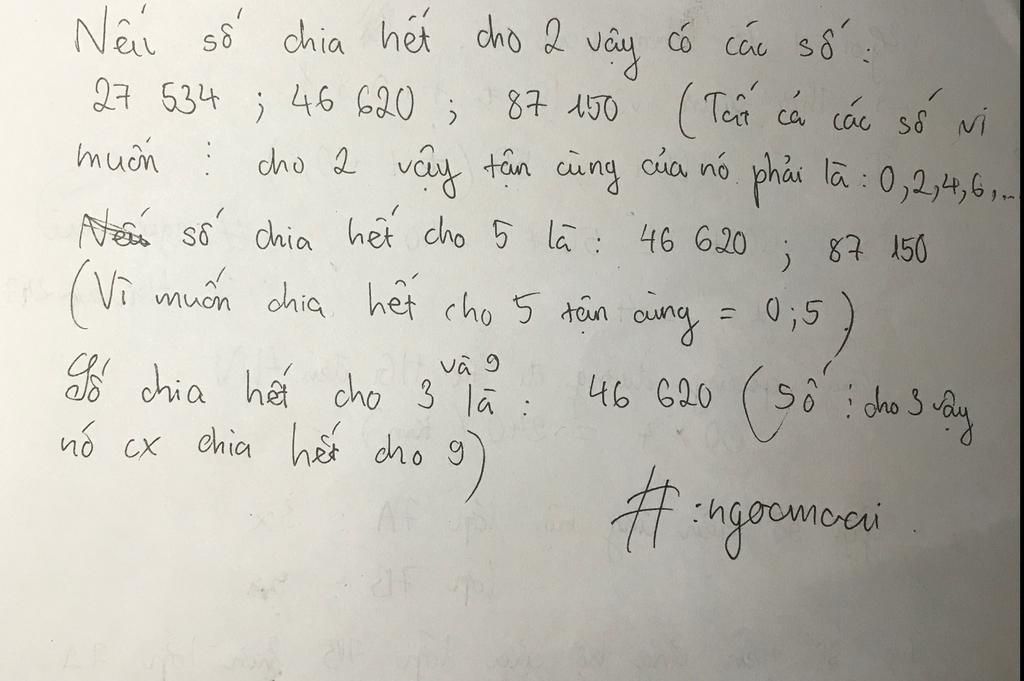 Nếu số chia hết cho 2 vậy có các số :
27 534 ; 46 620 ; 87 150 (Tất cả các số vì
muốn ⋮ cho 2 vậy tận cùng của nó phải là : 0,2,4,6,...
số chia hết cho 5 là : 46 620 ; 87 150
(Vì muốn chia hết cho 5 tận cùng = 0;5)
Số chia hết cho 3 và 9 là : 46 620 (Số ⋮ cho 3 vậy
nó cx chia hết cho 9)
# : ngocmaai